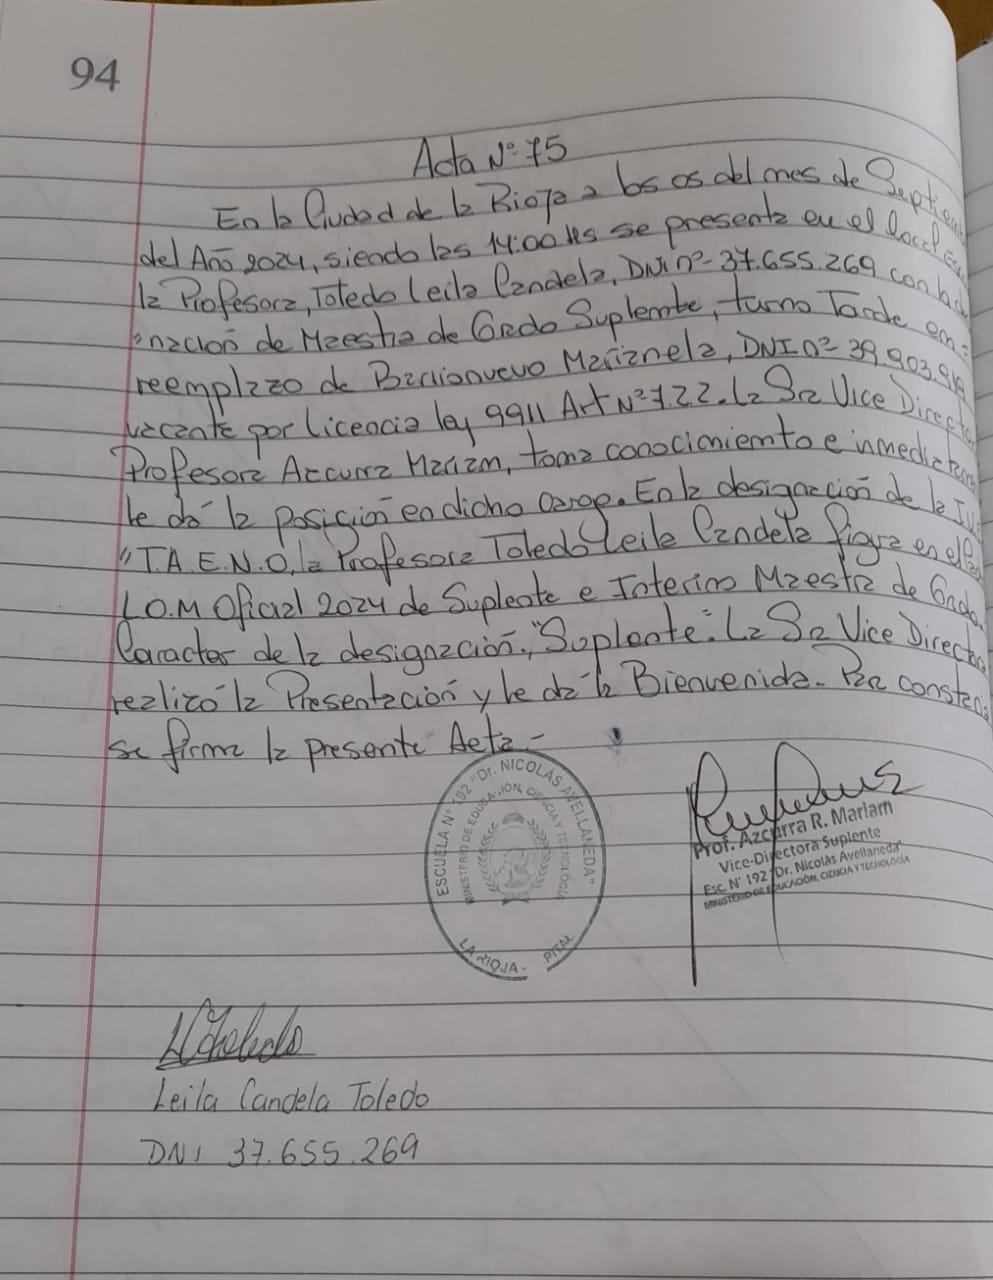 94
Acta N° 75
En la Ciudad de la Rioja a los 05 del mes de Septiem
del Año 2024, siendo las 14:00 Hs se presenta en el local Esc
la Profesora, Toledo Leila Candela, DNI n° 37.655.269 con la
nación de Maestra de Grado Suplente, turno Tarde en
reemplazo de Barrionuevo Marianela, DNI n° 39.903.919
vacante por licencia ley 9911 Art N° 7.2.2. La Sra Vice Directo
Profesora Azcurra Mariam, toma conocimiento e inmediatam
le dá la posición en dicho cargo. En la designación de la
"T.A.E.N.O, la Profesora Toledo Leila Candela figura en el
L.O.M Oficial 2024 de Suplente e Interino Maestra de Grado.
Caracter de la designación, "Suplente". La Sra Vice Directo
realizó la Presentación y le da la Bienvenida. Para constancia
se firma la presente Acta.-
ESCUELA N° 192 "Dr. NICOLÁS AVELLANEDA"
MINISTERIO DE EDUCACIÓN, CIENCIA Y TECNOLOGÍA
LA RIOJA - PITAL
Prof. Azcurra R. Mariam
Vice-Directora Suplente
Esc. N° 192 "Dr. Nicolás Avellaneda"
MINISTERIO DE EDUCACIÓN, CIENCIA Y TECNOLOGÍA
LCToledo
Leila Candela Toledo
DNI 37.655.269